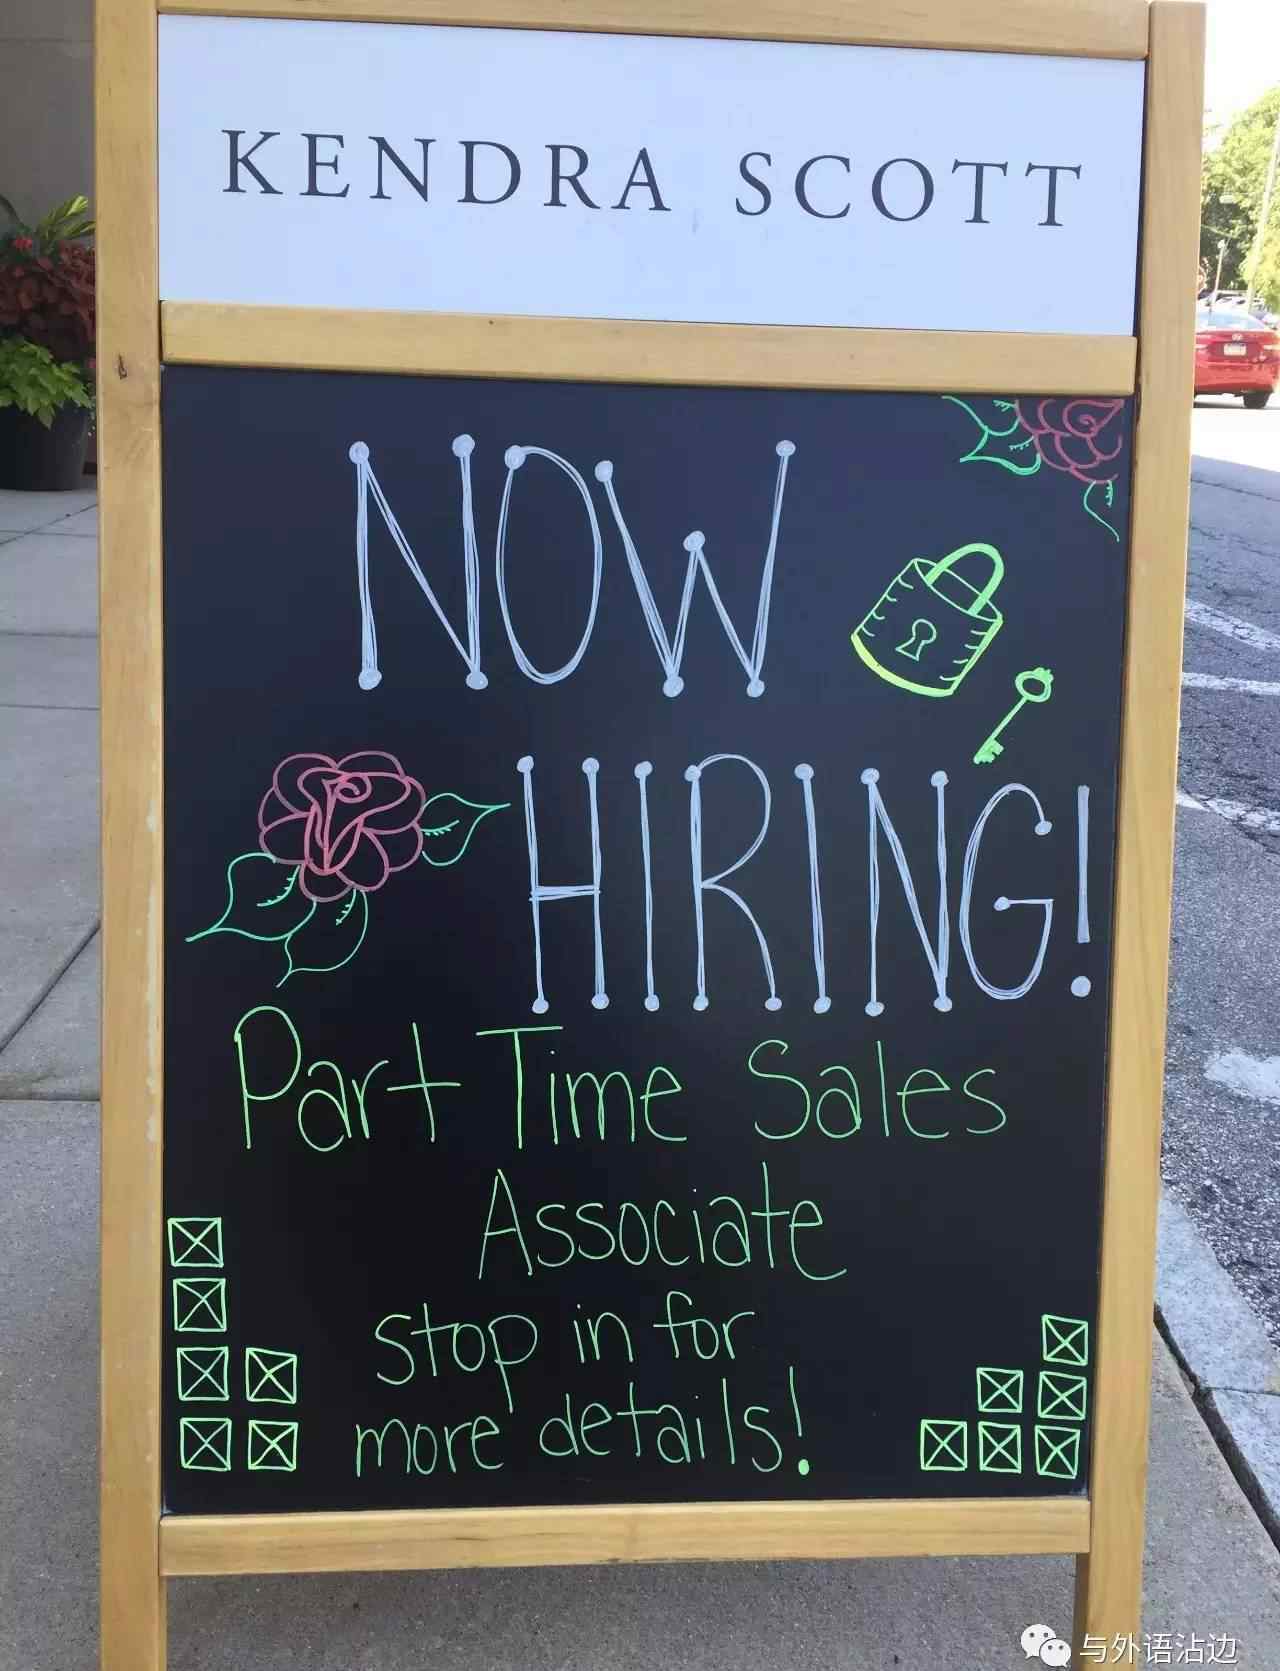 KENDRA SCOTT
NOW
HIRING!
Part Time Sales
Associate
stop in for
more details!
与外语沾边